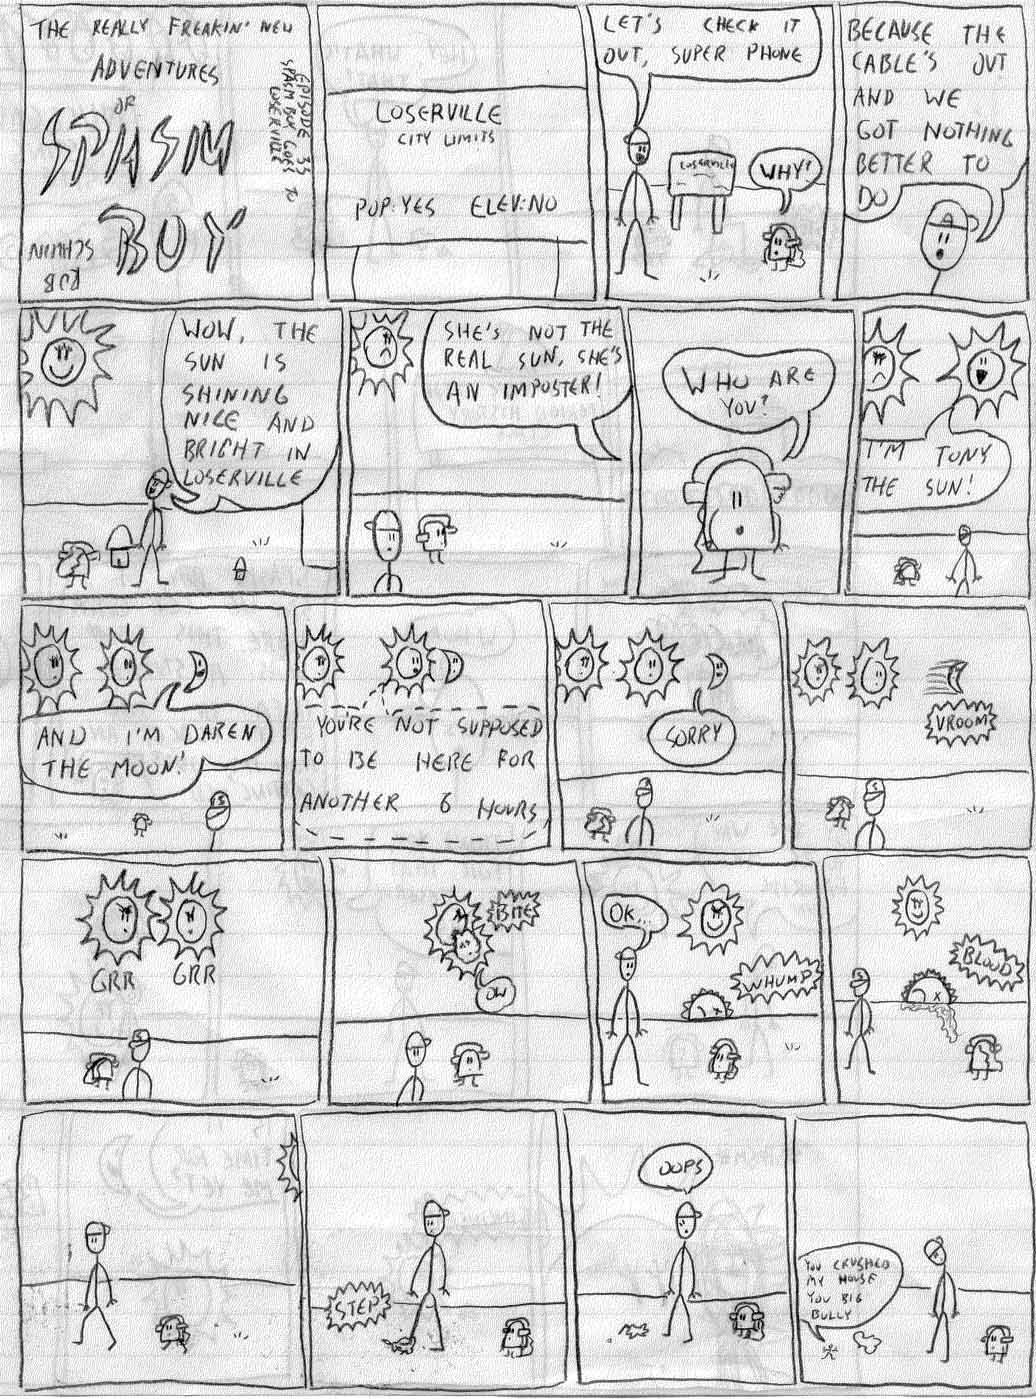 THE REALLY FREAKIN' NEW
ADVENTURES
OF
SPASM
BOY
EPISODE 33
SPASM BOY GOES TO
LOSERVILLE
ROB
SCHWIN
LOSERVILLE
CITY LIMITS
POP: YES ELEV: NO
LET'S CHECK IT
OUT, SUPER PHONE
LOSERVILLE
WHY?
BECAUSE THE
CABLE'S OUT
AND WE
GOT NOTHING
BETTER TO
DO
WOW, THE
SUN IS
SHINING
NICE AND
BRIGHT IN
LOSERVILLE
SHE'S NOT THE
REAL SUN, SHE'S
AN IMPOSTER!
WHO ARE
YOU?
I'M TONY
THE SUN!
AND I'M DAREN
THE MOON!
YOU'RE NOT SUPPOSED
TO BE HERE FOR
ANOTHER 6 HOURS
SORRY
VROOM
GRR GRR
BITE
OW
OK...
WHUMP
BLOOD
STEP
OOPS
YOU CRUSHED
MY HOUSE
YOU BIG
BULLY